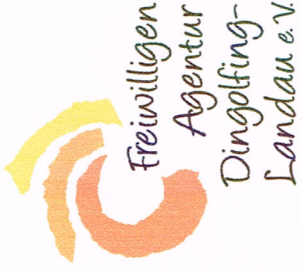 Freiwilligen
Agentur
Dingolfing-
Landau e.V.